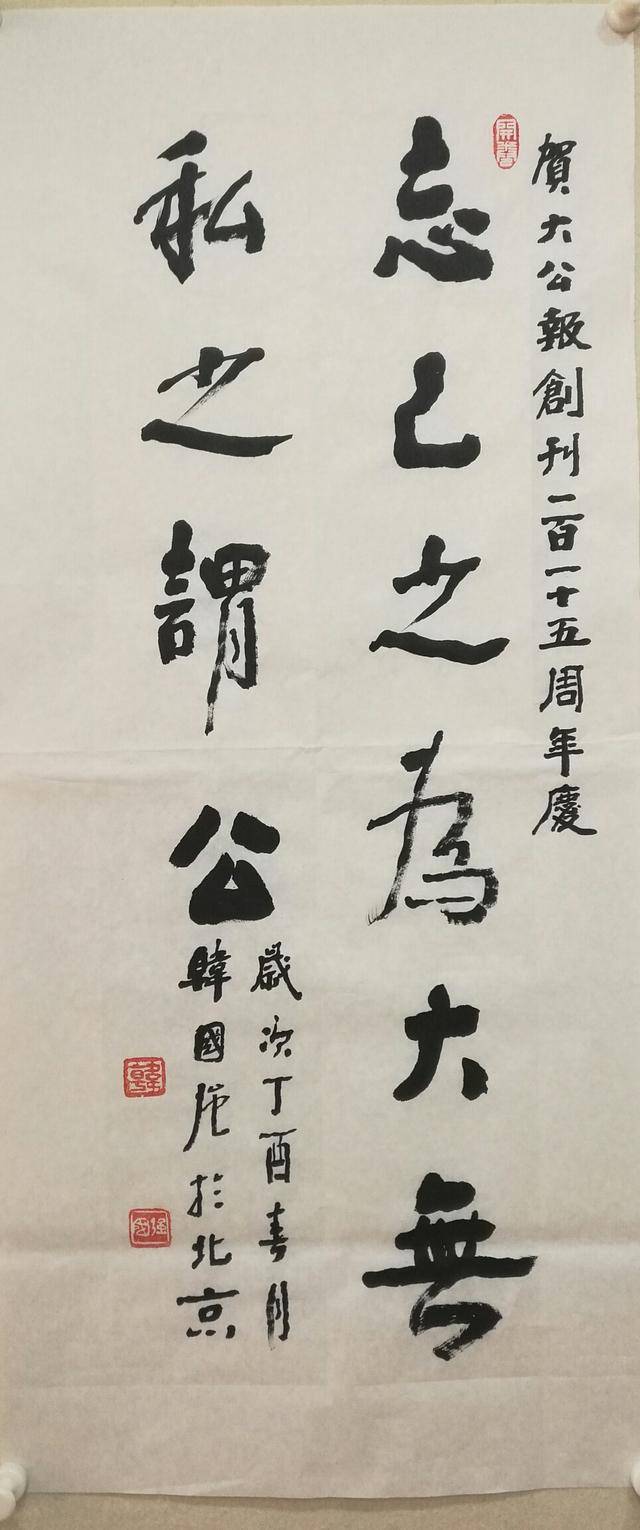 賀大公報創刊一百一十五周年慶
忘己之為大無
私之謂公
歲次丁酉春月
韓國強於北京